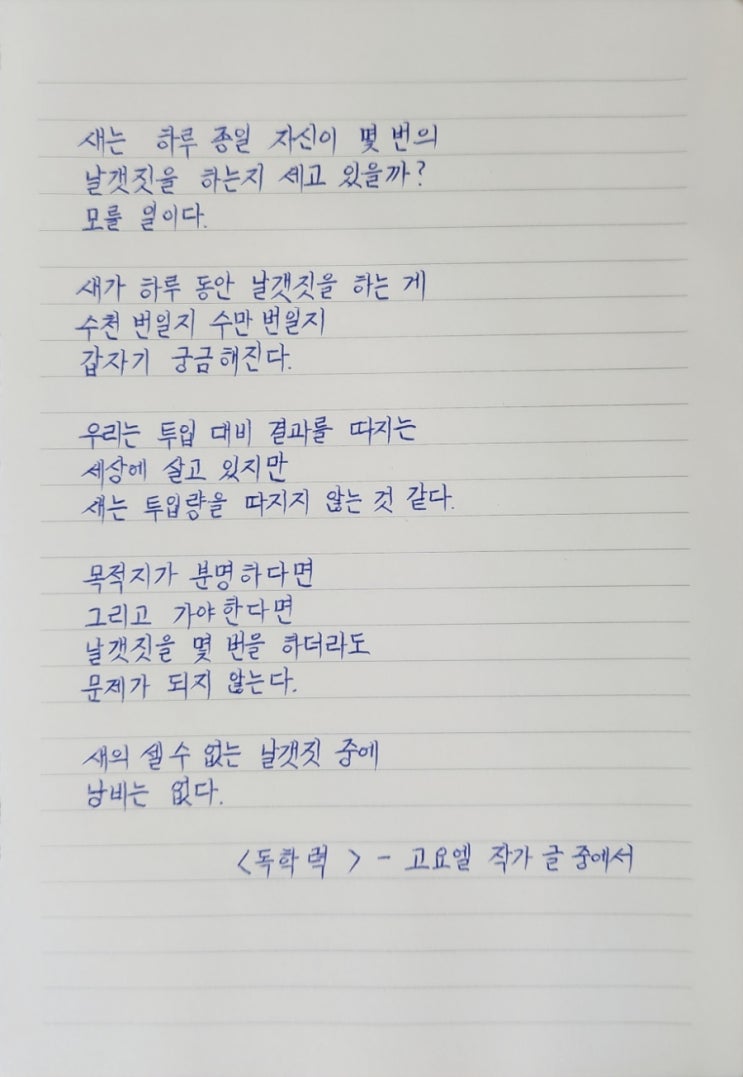 새는 하루 종일 자신이 몇 번의
날갯짓을 하는지 세고 있을까?
모를 일이다.
새가 하루 동안 날갯짓을 하는 게
수천 번일지 수만 번일지
갑자기 궁금해진다.
우리는 투입 대비 결과를 따지는
세상에 살고 있지만
새는 투입량을 따지지 않는 것 같다.
목적지가 분명하다면
그리고 가야한다면
날갯짓을 몇 번을 하더라도
문제가 되지 않는다.
새의 셀 수 없는 날갯짓 중에
낭비는 없다.
<독학력> - 고요엘 작가 글 중에서